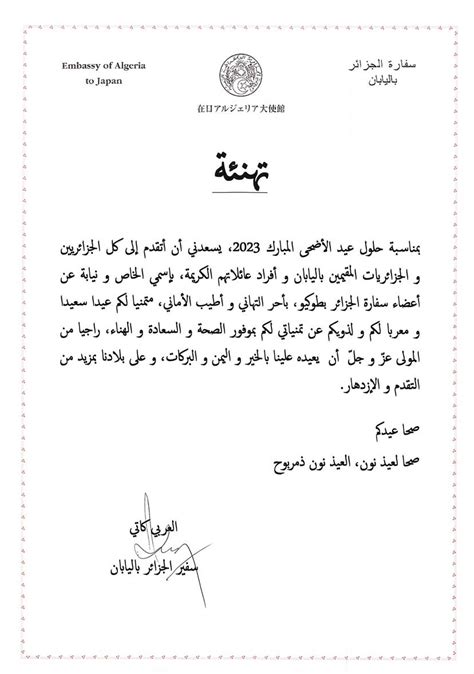 Embassy of Algeria
to Japan
سفارة الجزائر
باليابان
在日アルジェリア大使館
تهنئة
بمناسبة حلول عيد الأضحى المبارك 2023، يسعدني أن أتقدم إلى كل الجزائريين
و الجزائريات المقيمين باليابان و أفراد عائلاتهم الكريمة، بإسمي الخاص و نيابة عن
أعضاء سفارة الجزائر بطوكيو، بأحر التهاني و أطيب الأماني، متمنيا لكم عيدا سعيدا
و معربا لكم و لذويكم عن تمنياتي لكم بموفور الصحة و السعادة و الهناء، راجيا من
المولى عزّ و جلّ أن يعيده علينا بالخير و اليمن و البركات، و على بلادنا بمزيد من
التقدم و الإزدهار.
صحا عيدكم
صحا لعيذ نون، العيذ نون ذمربوح
العربي كاتي
سفير الجزائر باليابان